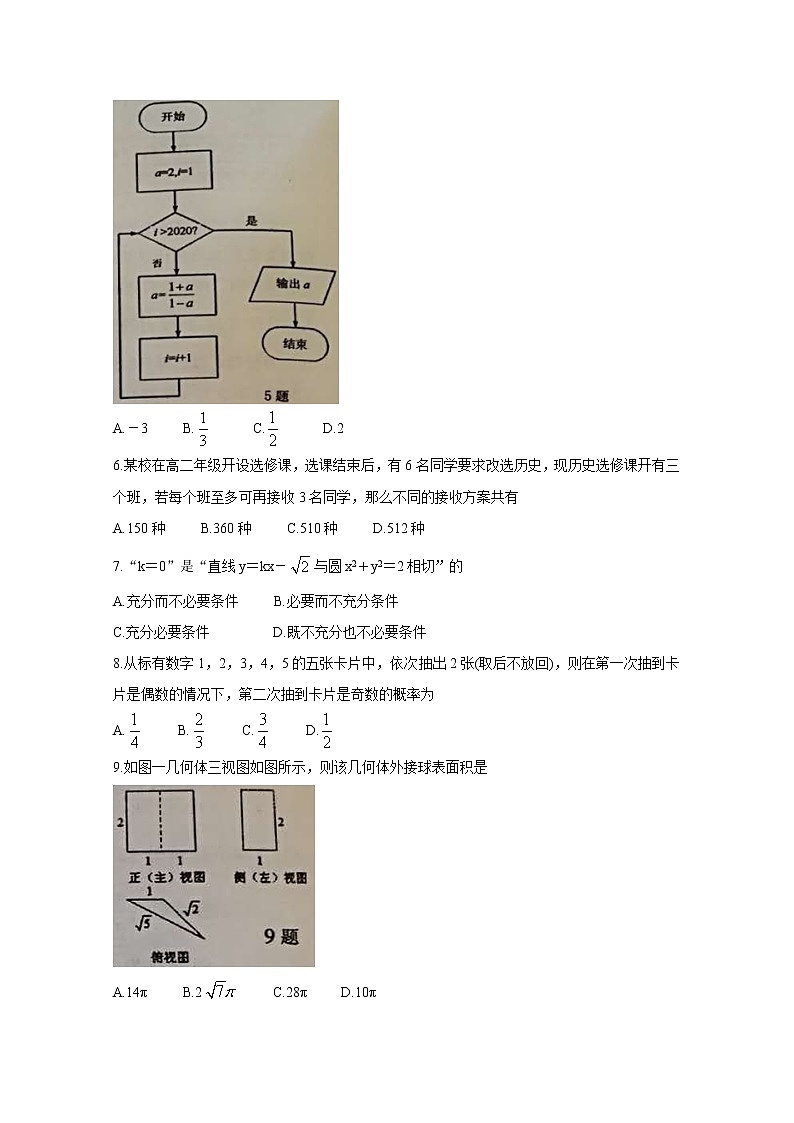 开始
a=2,i=1
i >2020?
是
否
a=(1+a)/(1-a)
输出 a
i=i+1
结束
5题
A.-3 B.1/3 C.1/2 D.2
6.某校在高二年级开设选修课，选课结束后，有6名同学要求改选历史，现历史选修课开有三
个班，若每个班至多可再接收3名同学，那么不同的接收方案共有
A.150种 B.360种 C.510种 D.512种
7.“k＝0”是“直线y＝kx－√2与圆x²＋y²＝2相切”的
A.充分而不必要条件 B.必要而不充分条件
C.充分必要条件 D.既不充分也不必要条件
8.从标有数字1，2，3，4，5的五张卡片中，依次抽出2张(取后不放回)，则在第一次抽到卡
片是偶数的情况下，第二次抽到卡片是奇数的概率为
A.1/4 B.2/3 C.3/4 D.1/2
9.如图一几何体三视图如图所示，则该几何体外接球表面积是
2 2
1 1 1
正（主）视图 侧（左）视图
1
√5 √2
9题
俯视图
A.14π B.2√7π C.28π D.10π